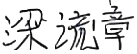 深流章